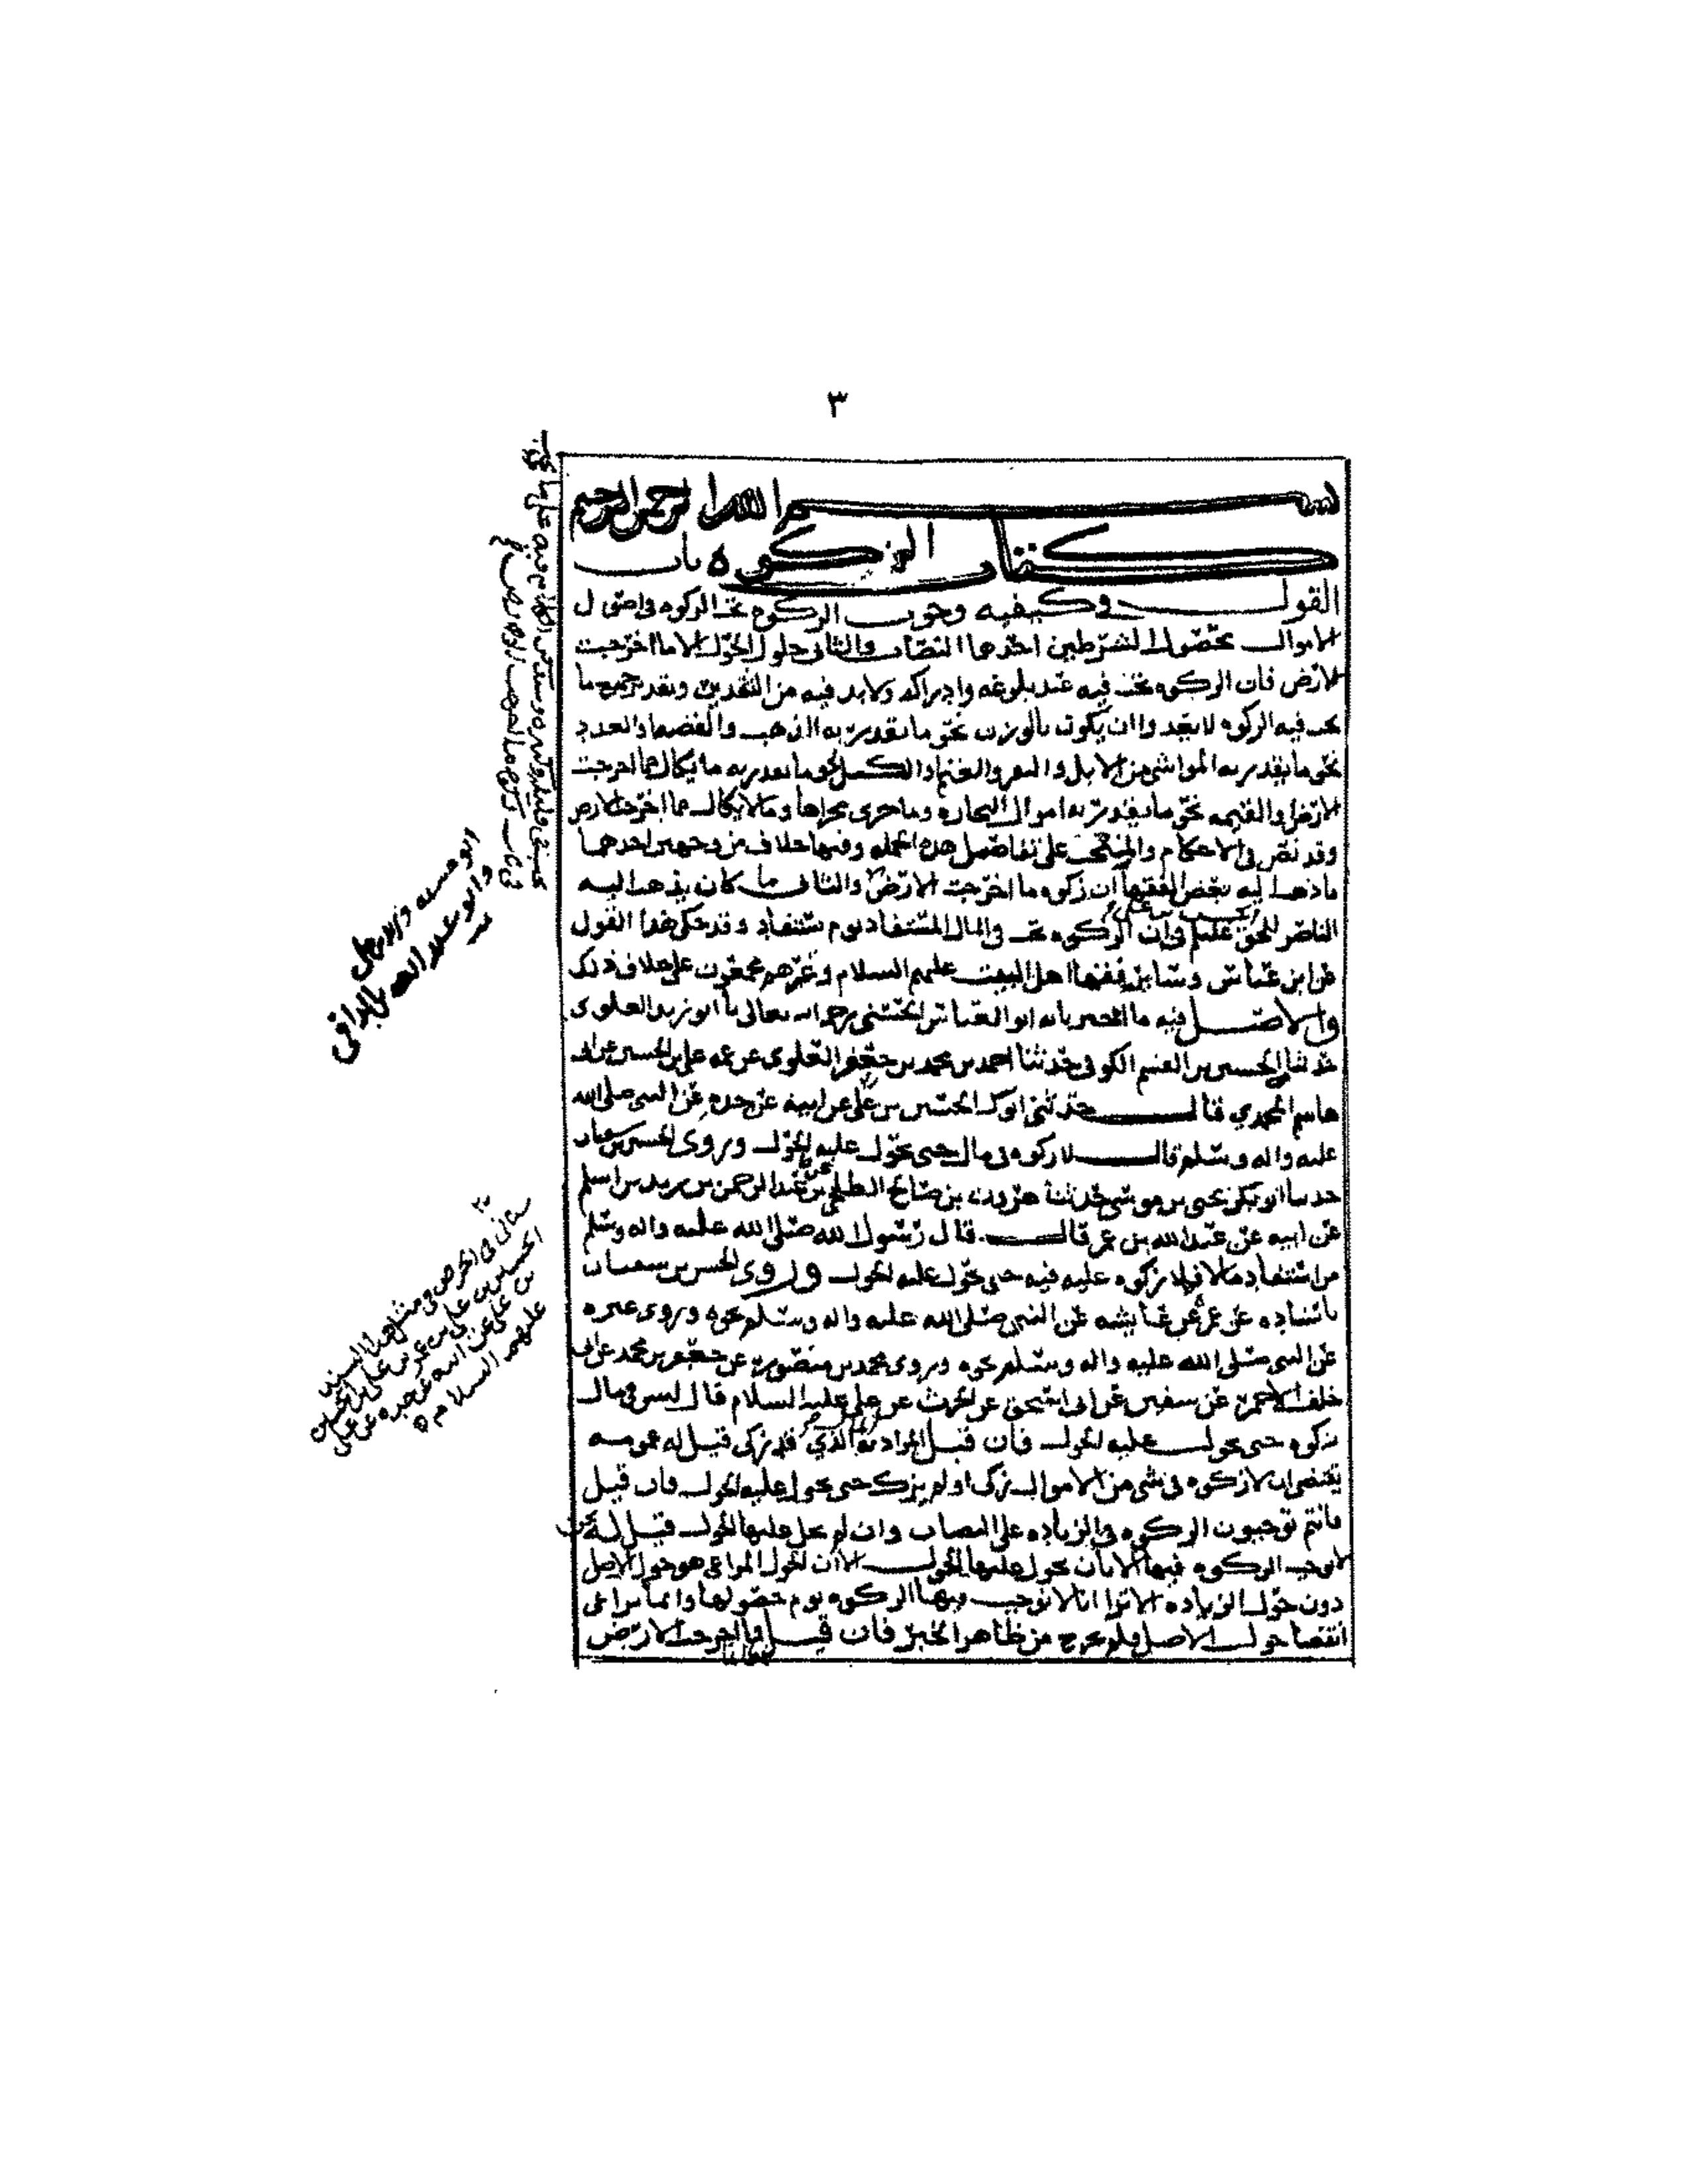 ٣
بســـم الله الرحمن الرحيم
كتاب الزكوه باب
القول وكيفيه وجوب الزكوه تجب الزكوه في اصول
الاموال بحصول الشرطين احدهما النصاب والثاني حلول الحول الا ما اخرجت
الارض فان الزكوه تجب فيه عند بلوغه وادراكه ولا بد فيه من التقدير وتقدير جميع ما
تجب فيه الزكوه لا يعدوا ان يكون بالوزن نحو ما تقدر به الذهب والفضه او العدد
نحو ما يقدر به المواشي من الابل والبقر والغنم او الكيل نحو ما يقدر به ما يكال مما اخرجت
الارض والقيمه نحو ما يقدر به اموال التجاره وما جرى مجراها وما لا يكال مما اخرجت الارض
وقد نص في الاحكام والمنتخب على تفاصيل هذه الجمله وفيها خلاف من وجهين احدهما
ما ذهب اليه بعض الفقها ان زكوه ما اخرجت الارض والثاني ما كان يذهب اليه
الناصر للحق عليه في ان الزكوه تجب في المال المستفاد يوم يستفاد وقد حكي هذا القول
عن ابن عباس وسائر فقها اهل البيت عليهم السلام وغيرهم مجمعون على خلاف ذلك
والاصل فيه ما اخبرنا به ابو العباس الحسني رحمه الله تعالى نا ابو زيد العلوي
حدثنا الحسين بن القسم الكوفي حدثنا احمد بن محمد بن جعفر العلوي عن عمه علي بن الحسين عن ابي
هاشم المحمدي قال حدثني ابوك الحسين بن علي عن ابيه عن جده عن النبي صلى الله
عليه واله وسلم قال لا زكوه في مال حتى يحول عليه الحول وروى الحسين بن
حدثنا ابو بكر يحيى بن موسى حدثنا هرون بن صالح الطلحي عن عبد الرحمن بن زيد بن اسلم
عن ابيه عن عبد الله بن عمر قال قال رسول الله صلى الله عليه واله وسلم
من استفاد مالا فلا زكوه عليه فيه حتى يحول عليه الحول وروى الحسن بن سفيان
باسناده عن عمره عن عايشه عن النبي صلى الله عليه واله وسلم نحوه وروى غيره
عن النبي صلى الله عليه واله وسلم نحوه وروى محمد بن منصور عن جعفر بن محمد عن ابي
خلف الاحمر عن سفين عن ابي اسحق عن الحرث عن علي عليه السلام قال ليس في مال
زكوه حتى يحول عليه الحول فان قيل المراد به الذي قد زكي قيل له عمومه
يقتضي ان لا زكوه في شي من الاموال زكي او لم يزك حتى يحول عليه الحول فان قيل
فانتم توجبون الزكوه في الزياده على النصاب وان لم يحل عليها الحول قيل له نحن
لا نوجب الزكوه فيها الا بان يحول عليها الحول الا ان الحول المراعى هو حول الاصل
دون حول الزياده الا ترا انا لا نوجب فيها الزكوه يوم حصولها وانما نراعي
انقضا حول الاصل فلم يخرج من ظاهر الخبر فان قيل فما اخرجت الارض
ابو حنيفه
وابو عبد الله
ومثل هذا السند
الحسين بن علي بن عمر بن علي بن الحسين
بن علي عن ابيه عن جده عن علي
عليهم السلام